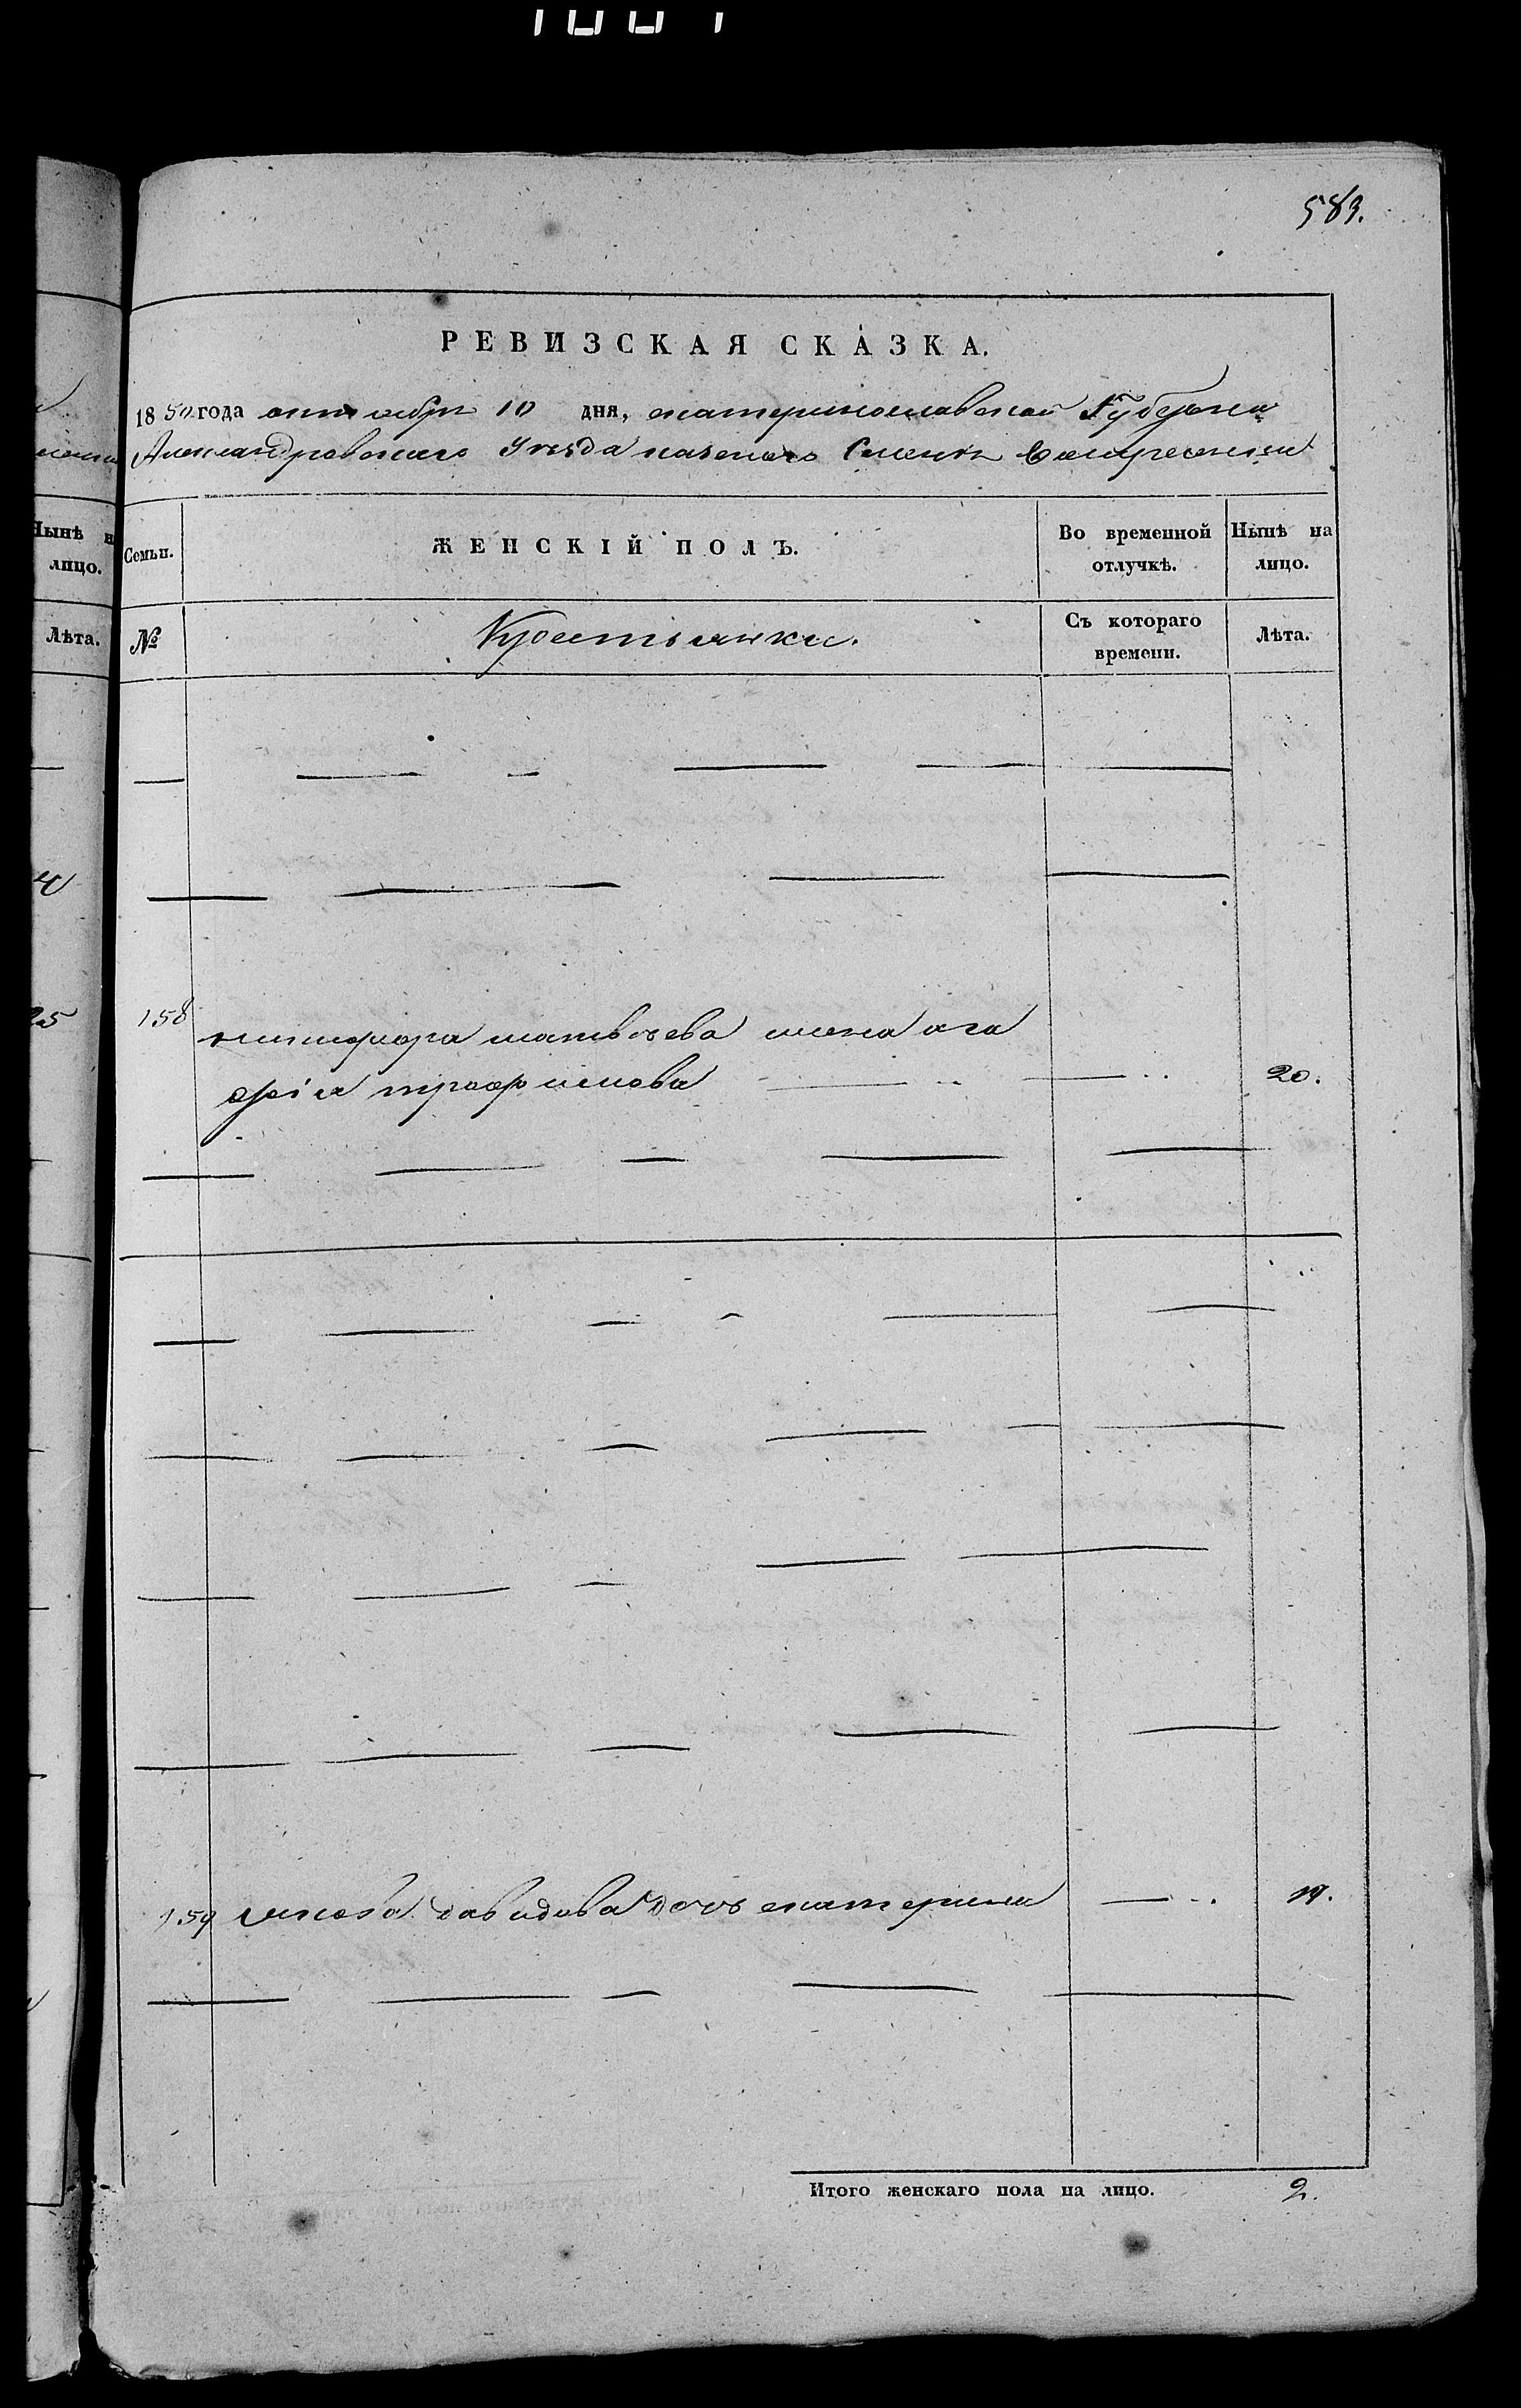 583.
РЕВИЗСКАЯ СКАЗКА.
1850 года октября 10 дня, екатеринославской Губерніи
Александровскаго Уезда казенаго Селенія Воскресенки
Нынѣ н
лицо.
Лѣта.
25
Семьи.
ЖЕНСКІЙ ПОЛЪ.
Во временной отлучкѣ.
Нынѣ на лицо.
№
Крестьянки.
Съ котораго времени.
Лѣта.
158
никифора матвѣева жена ага
фіа трофимова 20.
159 якова давидова дочь екатерина 19.
Итого женскаго пола на лицо. 2.